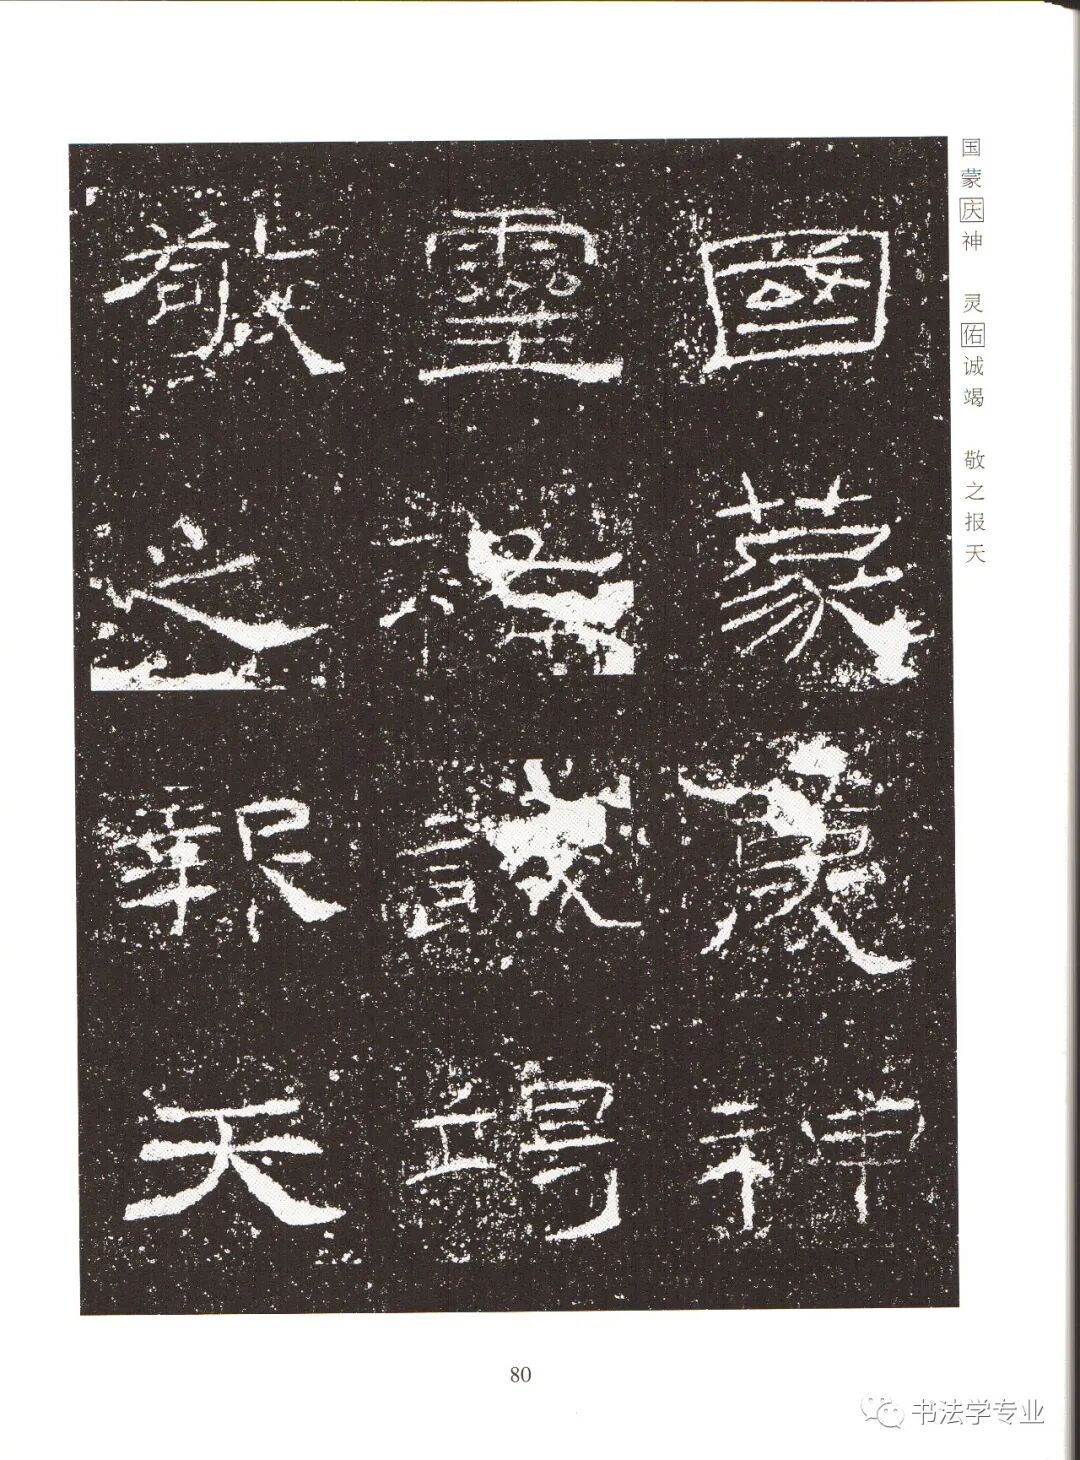 國蒙慶神
靈祐誠竭
敬之報天
国蒙庆神 灵佑诚竭 敬之报天
80
书法学专业